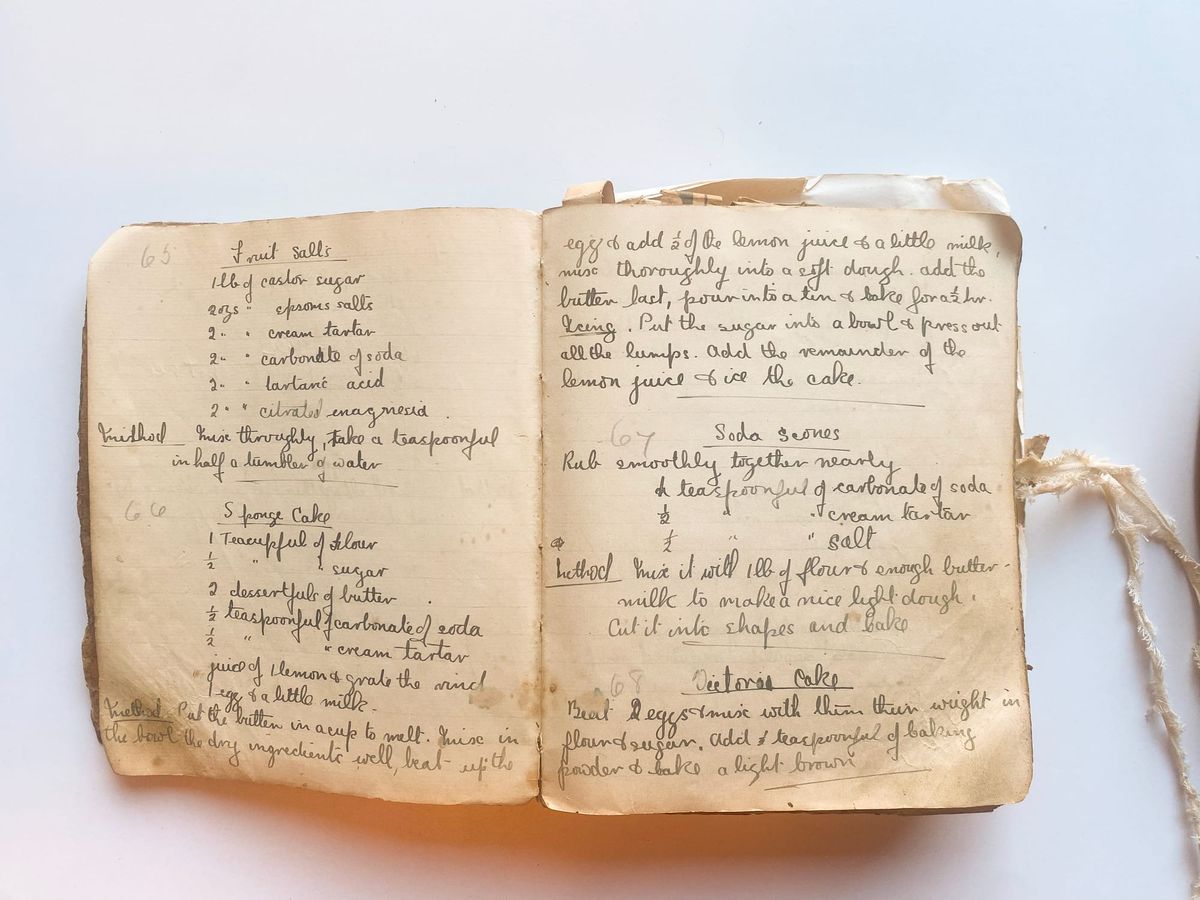 65
Fruit Salts
1 lb of castor sugar
2 ozs " epsoms salts
2 " " cream tartar
2 " " carbonate of soda
2 " " tartaric acid
2 " " citrated magnesia.
Method Mix throughly, Take a teaspoonful
in half a tumbler of water
66
Sponge Cake
1 Teacupful of flour
½ " " sugar
2 dessertfuls of butter.
½ teaspoonful of carbonate of soda
½ " " cream tartar
juice of 1 lemon & grate the rind
1 egg & a little milk.
Method Put the butter in a cup to melt. Mix in
the bowl the dry ingredients well, beat up the
egg & add ½ of the lemon juice & a little milk,
mix thoroughly into a soft dough. add the
butter last, pour into a tin & bake for a ½ hr.
Icing. Put the sugar into a bowl & press out
all the lumps. Add the remainder of the
lemon juice & ice the cake.
67
Soda Scones
Rub smoothly together nearly
teaspoonful of carbonate of soda
½ " " cream tartar
½ " " salt
Method Mix it with 1 lb of flour & enough butter-
milk to make a nice light dough.
Cut it into shapes and bake
68
Victoria Cake
Beat 2 eggs & mix with them their wright in
flour & sugar. Add teaspoonful of baking
powder & bake a light brown